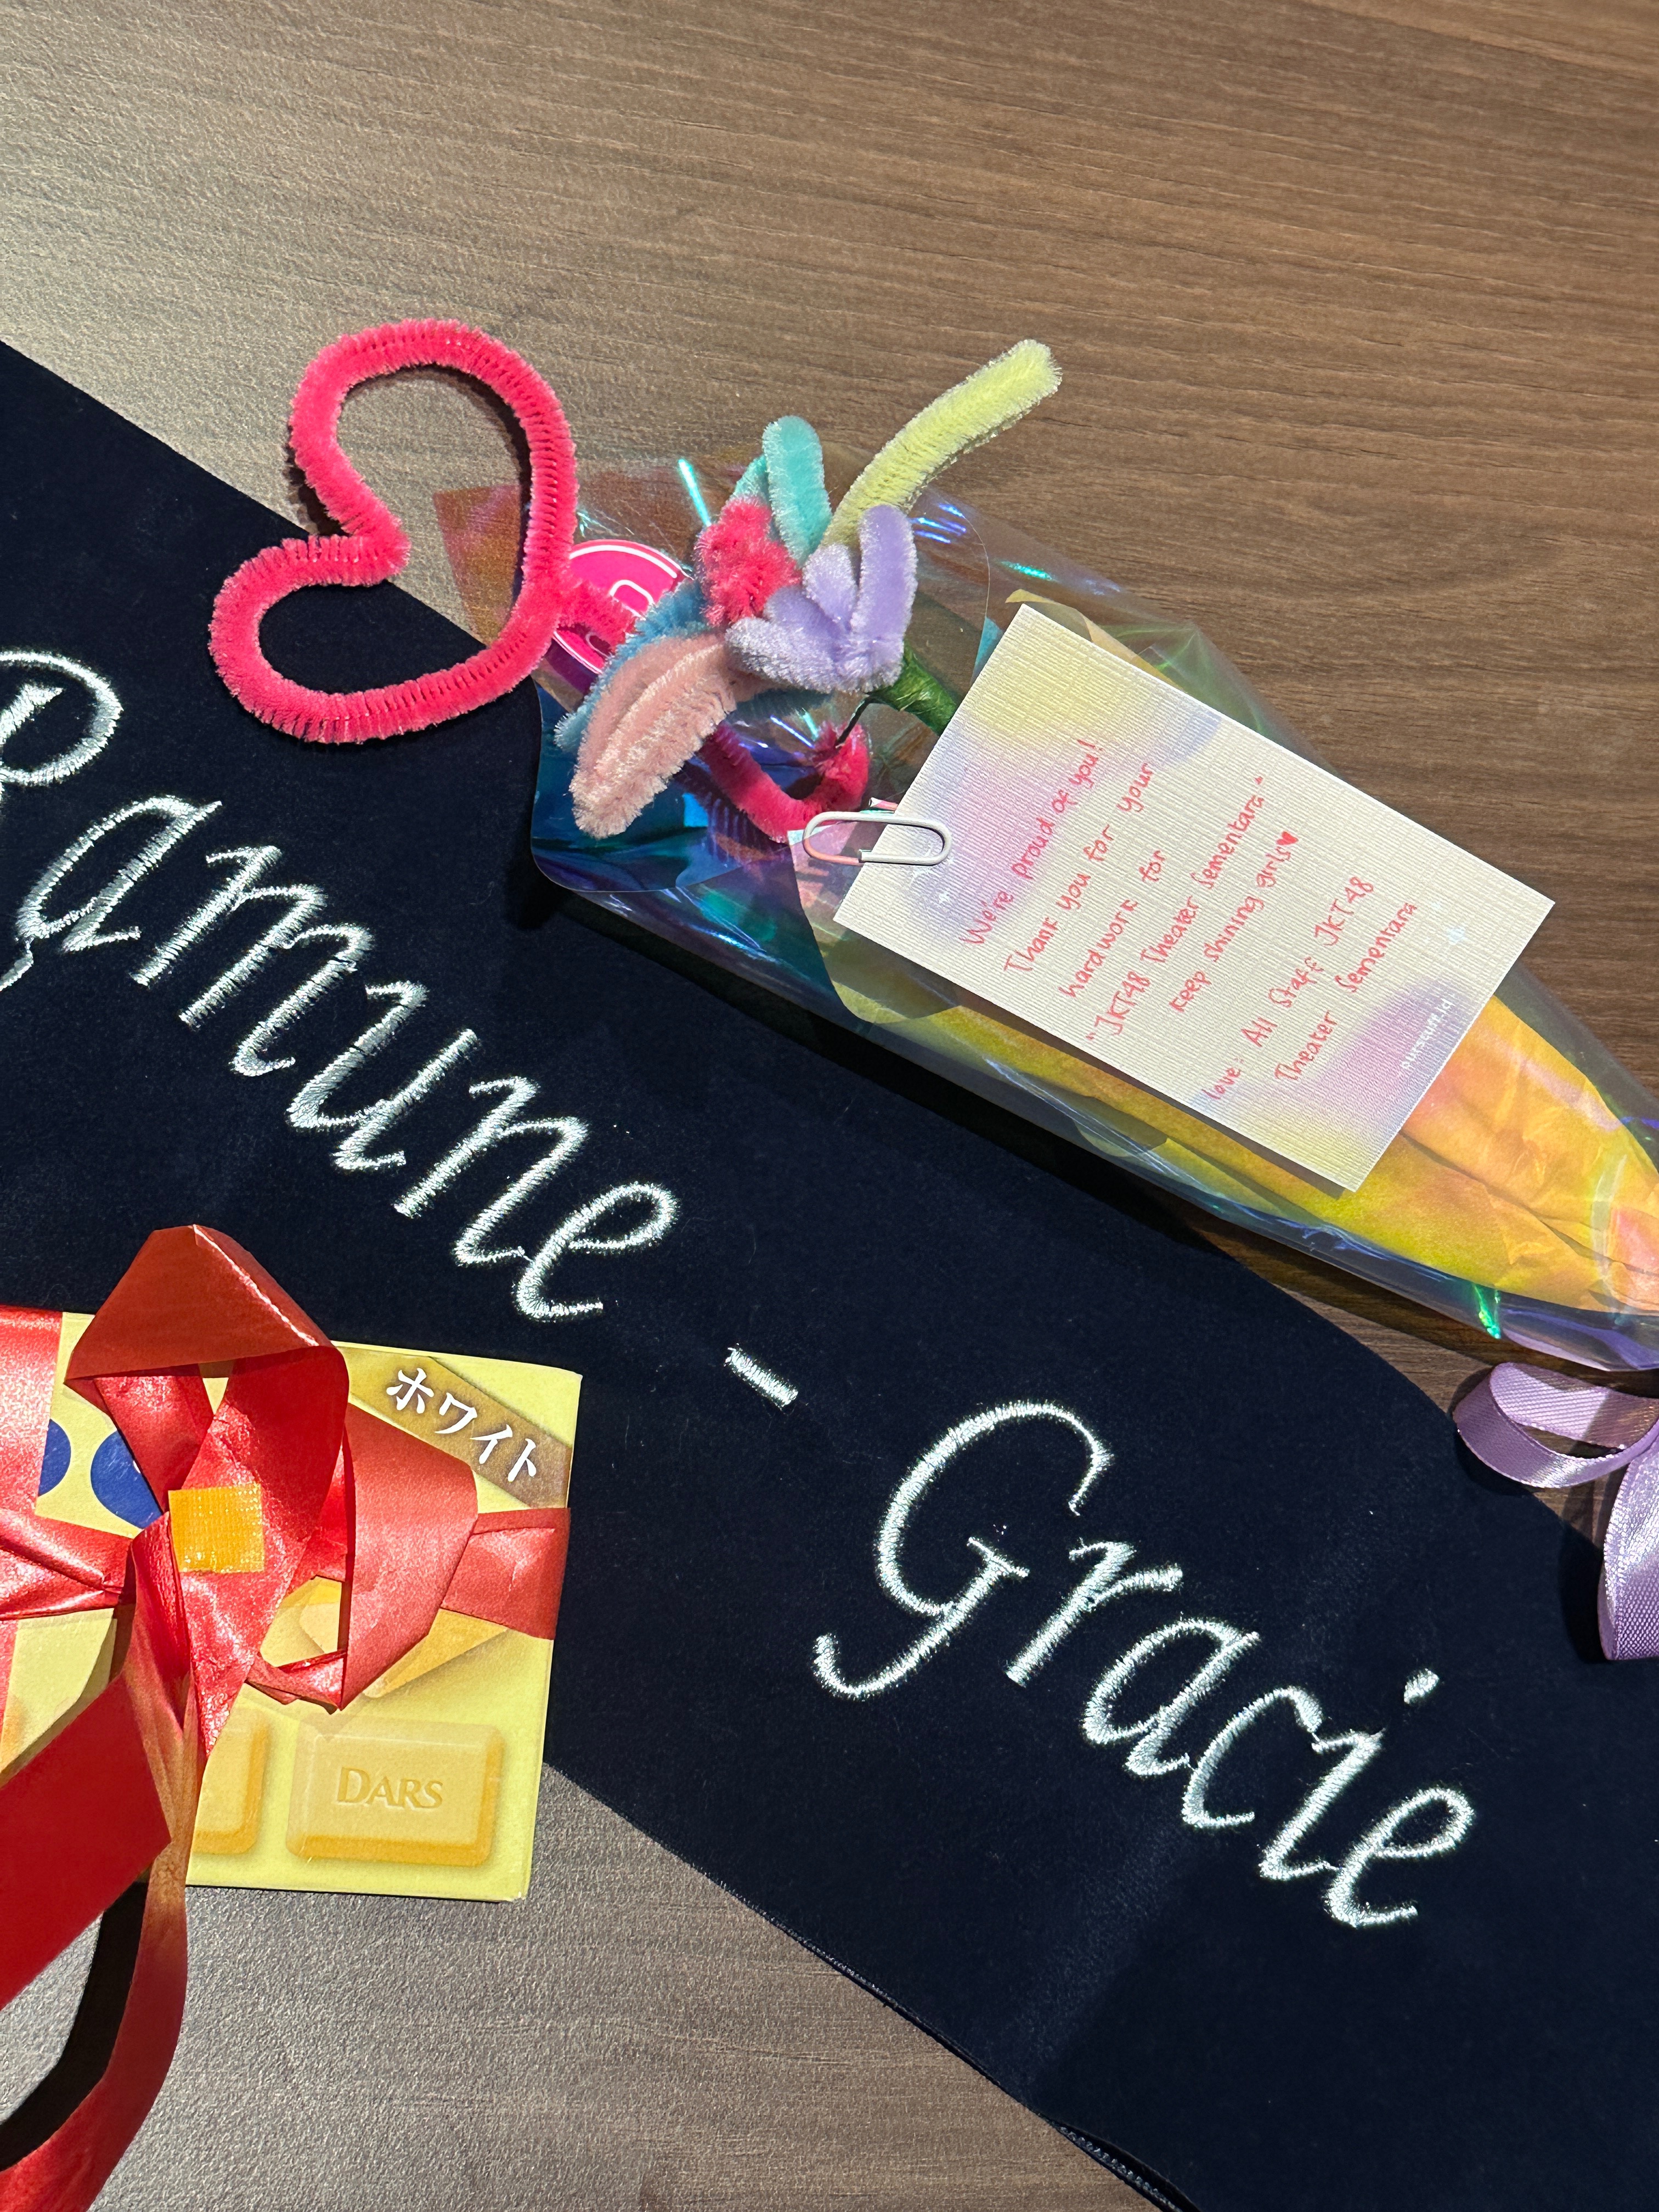 We're proud of you!
Thank you for your
hardwork for
"JKT48 Theater Sementara"
Keep shining girls♥
love: All Staff JKT48
Theater Sementara
Ramune - Gracie
ホワイト
DARS